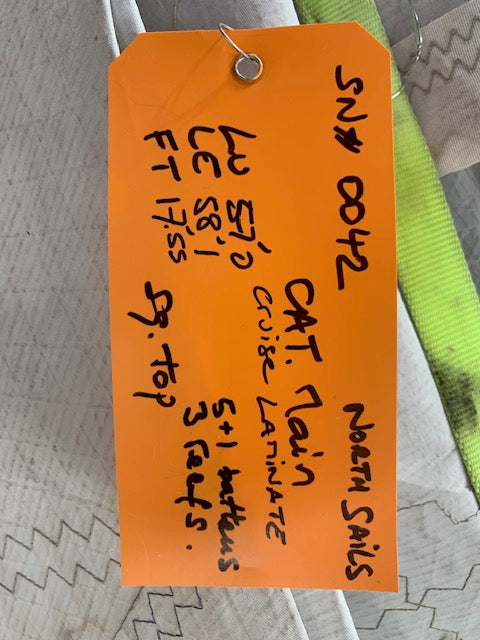 SN# 0042 NORTH SAILS
CAT. Main
Cruise LAMINATE
LU 57'0
LE 58'1 5+1 battens
FT 17'.55 3 reefs.
Sq. Top